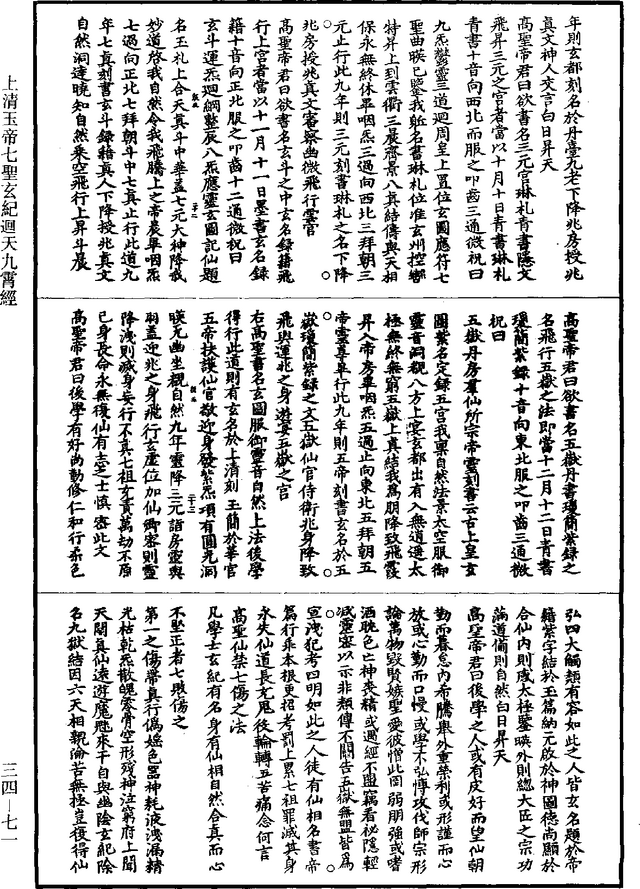 年則玄都刻名於丹臺九老下降兆房授兆
真文神人交言白日昇天
高聖帝君曰欲書名三元宮琳札青書隱文
飛昇三元之宮者當以十月十日青書琳札
青書十音向西北而服之叩齒三通微祝曰
九炁鬱靈三道迴周皇上置位玄圖應符七
聖曲暎已鑒我近名書琳札位准玄州控轡
特昇上到雲衢三晨齊景八真結儔與天相
保永無終休畢咽炁三過向西北三拜朝三
元止行此九年則三元刻書琳札之名下降
兆房授兆真文審察幽微飛行雲宮
高聖帝君曰欲書名玄斗之中玄名錄籍飛
行上宮者當以十一月十一日墨書玄名錄
籍十音向正北服之叩齒十二通微祝曰
玄斗運炁迴綱整辰八炁應靈玄圖記仙題
名玉札上合天真斗中華蓋七元大神降我
妙道啓我自然令我飛騰上之帝晨畢咽炁
七過向正北七拜朝斗中七真止行此道九
年七真刻書玄斗錄籍真人下降授兆真文
自然洞達曉知自然乘空飛行上昇斗晨
高聖帝君曰欲書名五嶽丹書瓊簡紫錄之
名飛行五嶽之法即當十二月十二日青書
瓊簡紫錄十音向東北服之叩齒三通微
祝曰
五嶽丹房羣仙所宗帝靈刻書云古上皇玄
圖紫名定錄五宮我稟自然法景太空服御
靈音洞觀八方上宴玄都出有入無道遊太
極無終無窮五嶽上真結我爲朋降致飛霞
昇入帝房畢咽炁五過止向東北五拜朝五
帝靈尊畢行此九年則五帝刻書玄名於五
嶽瓊簡紫錄之文五嶽仙官侍衛兆身降致
飛輿運兆之身遊宴五嶽之宮
右高聖書名玄圖服御靈音自然上法後學
得行此道則有玄名於上清刻玉簡於華宮
五帝扶護仙官敬迎身發紫炁項有圓光洞
暎无幽坐觀自然九年靈降三元詣房靈輿
羽蓋迎兆之身飛行玄虛位加仙卿客則靈
降洩則滅身妄行不真七祖充責萬劫不原
已身長命永無復仙有志之士慎密此文
高聖帝君曰後學有好尚勤修仁和行柔色
弘四大觸類有容如此之人皆玄名題於帝
籍紫字結於玉篇納元啟於神圖德尚顯於
合仙內則咸太極鑒暎外則總大匠之宗功
滿道備則自然白日昇天
高聖帝君曰後學之人或有皮好而望仙朝
勤而暮怠內希騰舉外重榮利或形謹而心
放或心勤而口慢或學不弘博攻伐師宗形
論萬物毀賢嫉聖愛彼憎此罔弱朋強或嗜
酒耽色亡神喪精或遇經不盟竊看祕隱輕
滅靈審以示非類傳不關告五嶽無盟皆爲
宣洩犯考四明如此之人徒有仙相名書帝
篇行乖本根更招考罰上累七祖罪滅其身
永失仙道長充鬼役輪轉五苦痛念何言
高聖仙禁七傷之法
凡學士玄紀有名身有仙相自然合真而心
不堅正者七敗傷之
第一之傷帶真行僞婬色喪神耗液洩漏精
光枯乾炁散魄零骨空形殘神泣窮府上聞
天關真仙遠遊魔魅來干自與幽陰玄紀除
名九嶽結因六天相親淪苦無極豈復得仙
上清玉帝七聖玄紀迴天九霄經
三四—七一